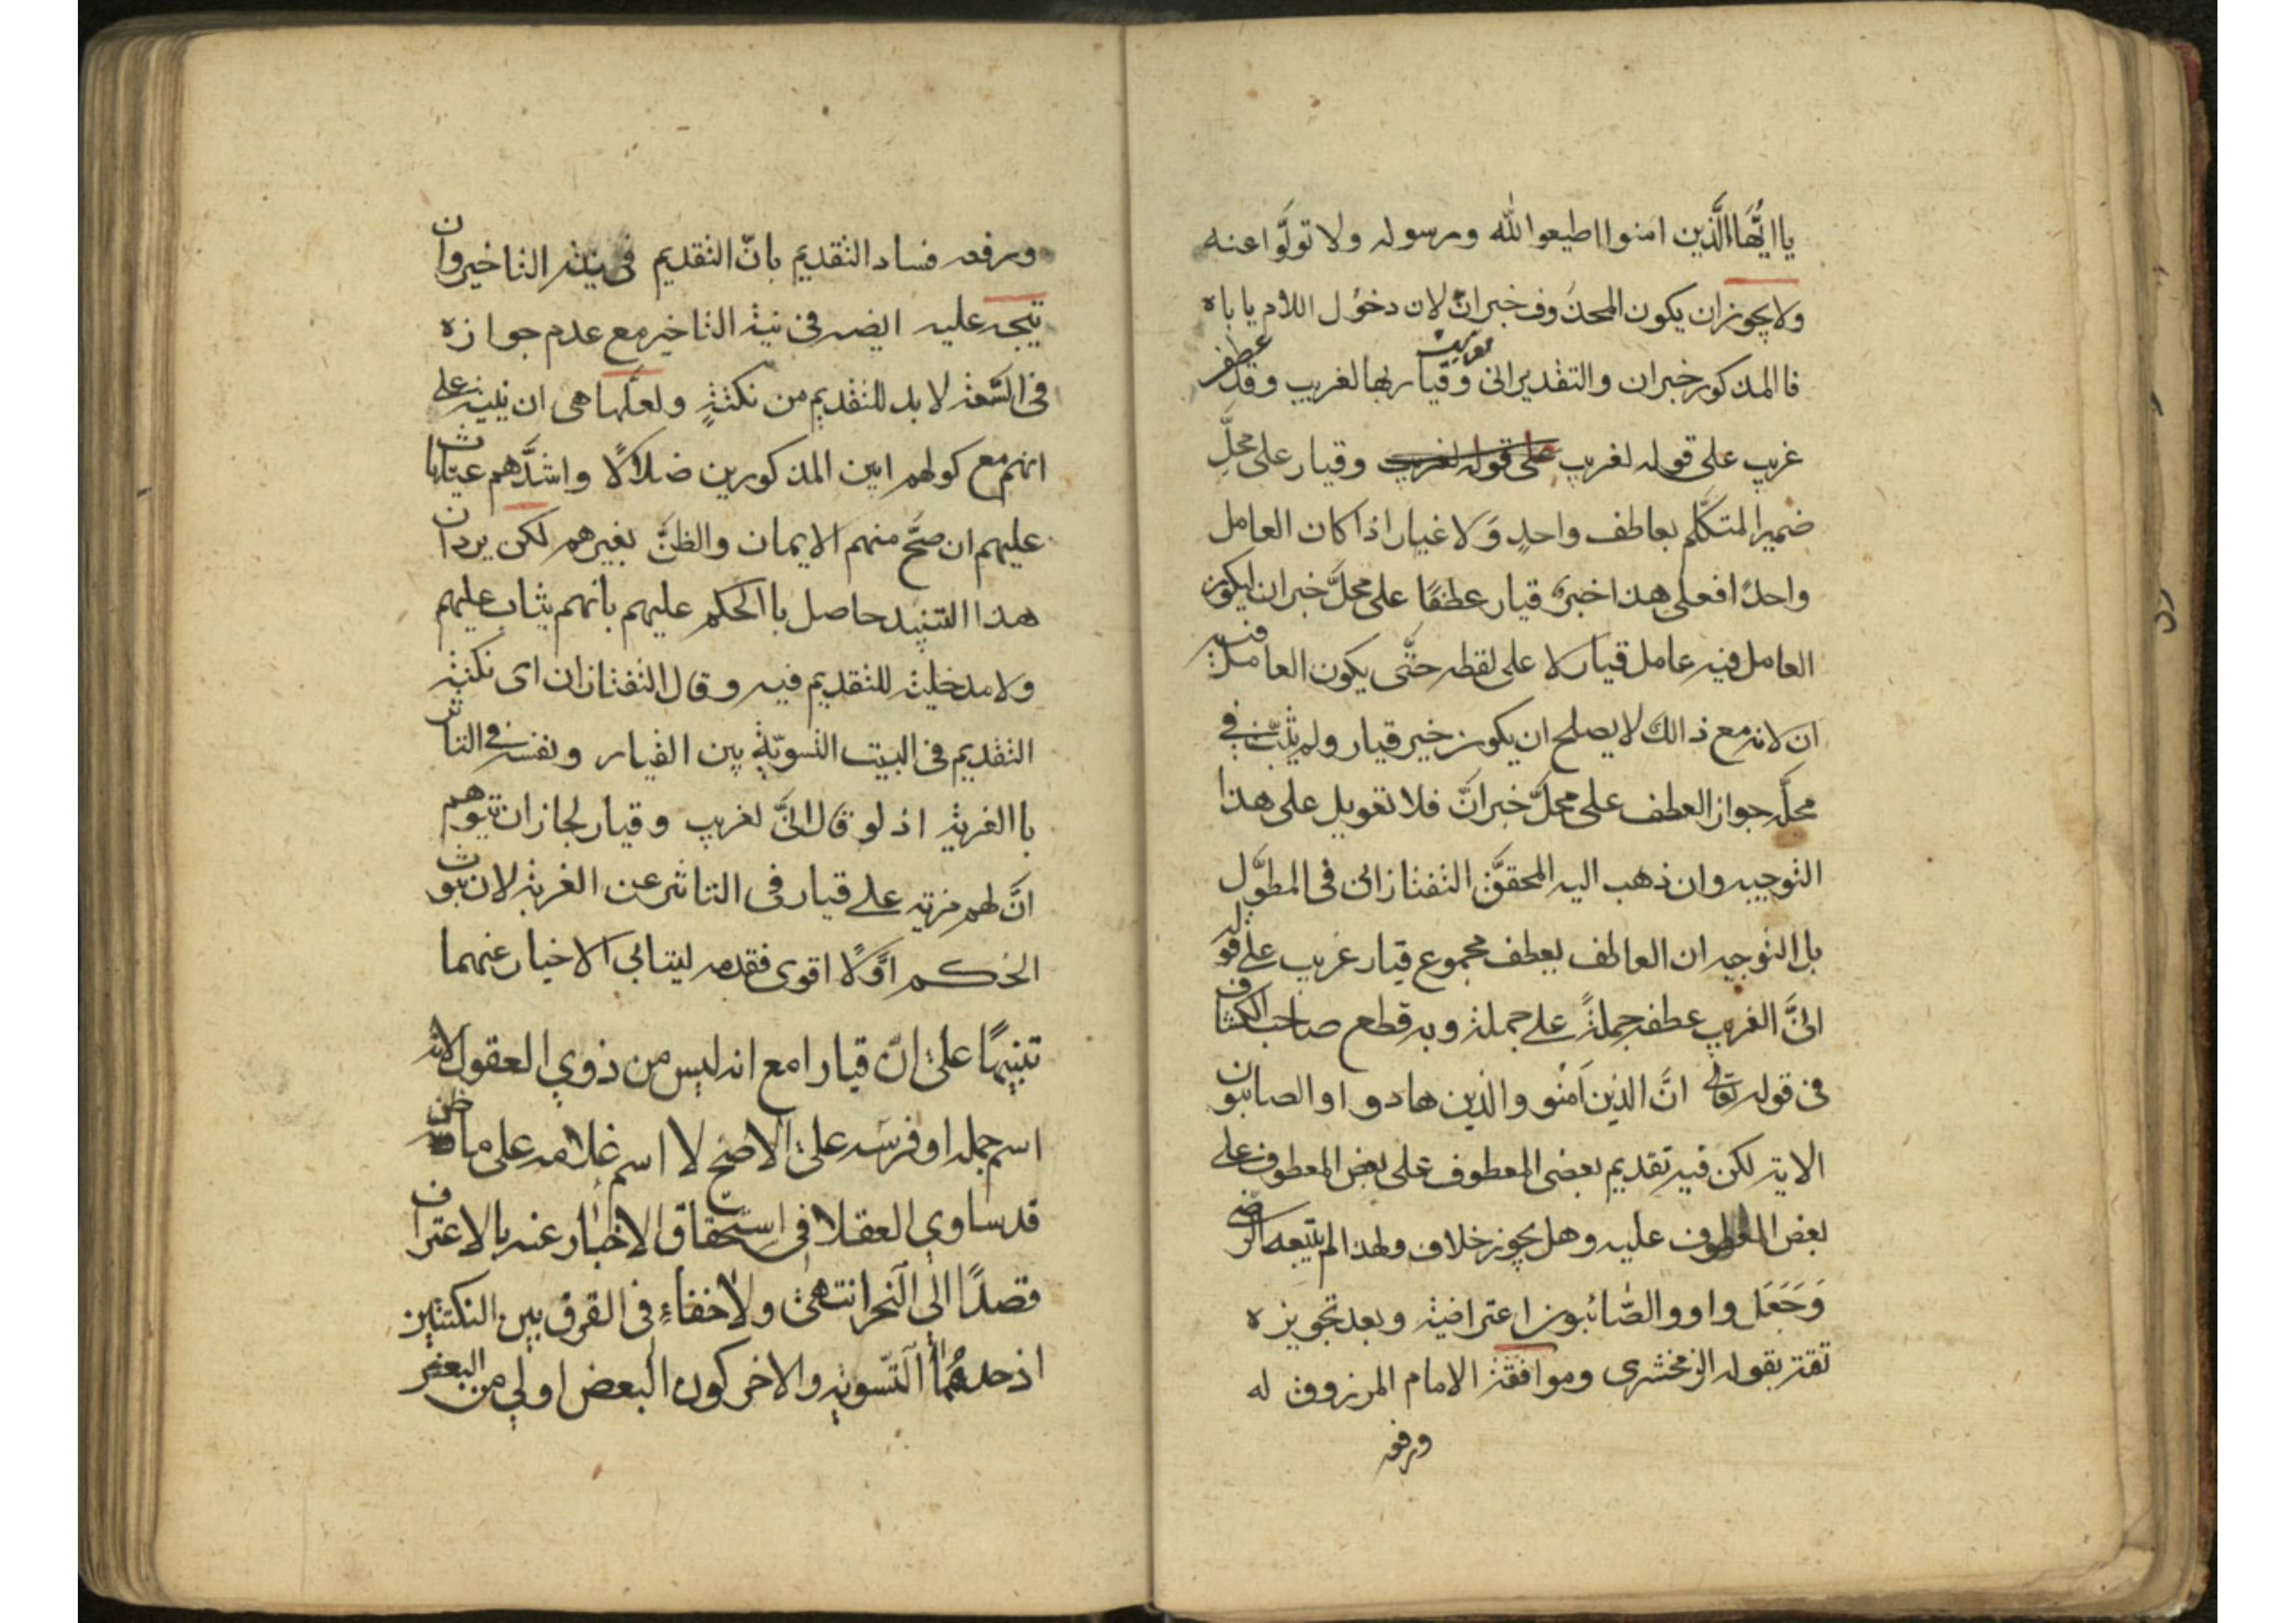 يا ايُّهَا الَّذين امنوا اطيعوا الله ورسوله ولا تولَّوا عنه
ولا يجوز ان يكون المحذوف خبر انّ لان دخول اللام ياباه
فا المذكور خبر ان والتقدير انى وقيار بها لغريب وقد عطف
غريب على قوله لغريب على قوله لغريب وقيار على محلِّ
ضمير المتكلّم بعاطف واحدٍ وَلا غبار اذا كان العامل
واحدًا فعلى هذا خبر قيار عطفًا على محلّ خبر ان ليكون
العامل فيه عامل قيار لا على لفظه حتَّى يكون العامل فيه
ان لانه مع ذالك لا يصلح ان يكون خبر قيار ولم يثبت فى
محلّه جواز العطف على محلّ خبر انَّ فلا تعويل على هذا
التوجيه وان ذهب اليه المحقّق التفتازانى فى المطوَّل
بل التوجيه ان العاطف يعطف مجموع قيار غريب على قوله
انىَّ الغريب عطف جملةً على جملة وبه قطع صاحب الكشاف
فى قوله تعالى انَّ الذين اَمنو والذين هادو او الصابون
الاية لكن فيه تقديم بعضى المعطوف على بعض المعطوف على
بعض المعطوف عليه وهل يجوز خلاف ولهذا لم يتبعه الرضى
وَجَعَل واو والصَّائبون اعتراضية وبعد تجويزه
تقتر بقوله الزمخشرى وموافقة الامام المرزوقى له
ورفعه
ورفعه فساد التقديم بانّ التقديم فى نية التاخير وان
يتجه عليه ايضه فى نية التاخير مع عدم جوازه
فى السَّعة لا بد للتقديم من نكتةٍ ولعلّها هى ان ينبه على
انهم مع كولهم ابين المذكورين ضلالًا واشدَّهم عيّا يثاب
عليهم ان صحَّ منهم الايمان والظنَّ بغيرهم لكن يرد ان
هذا التنبيه حاصل با الحكم عليهم بانهم يثاب عليهم
ولا مدخلية للتقديم فيه وقال التفتازان اى نكتة
التقديم فى البيت التسويّة بين القيار ونفسه فى التاثر
با الغربة اذ لو قال انىَّ لغريب وقيار لجاز ان يتوهم
انَّ لهم مزية على قيار فى التاثر عن الغربة لان ثبوت
الحكم اوّلًا اقوى فقدمه ليتاتى الاخبار عنهما
تنبيهًا على انّ قيارا مع انه ليس من ذوي العقول لانه
اسم جمله او فرسَه على الاصحّ لا اسم غلامه على ما ظن
قد ساوي العقلا فى استحقاق الاخبار عنه با الاعتراف
قصدًا الى التحرانتهى ولا خفاء فى الفرق بين النكتتين
اذ حدهُمَا التّسوية والاخر كون البعض اولي من البعض